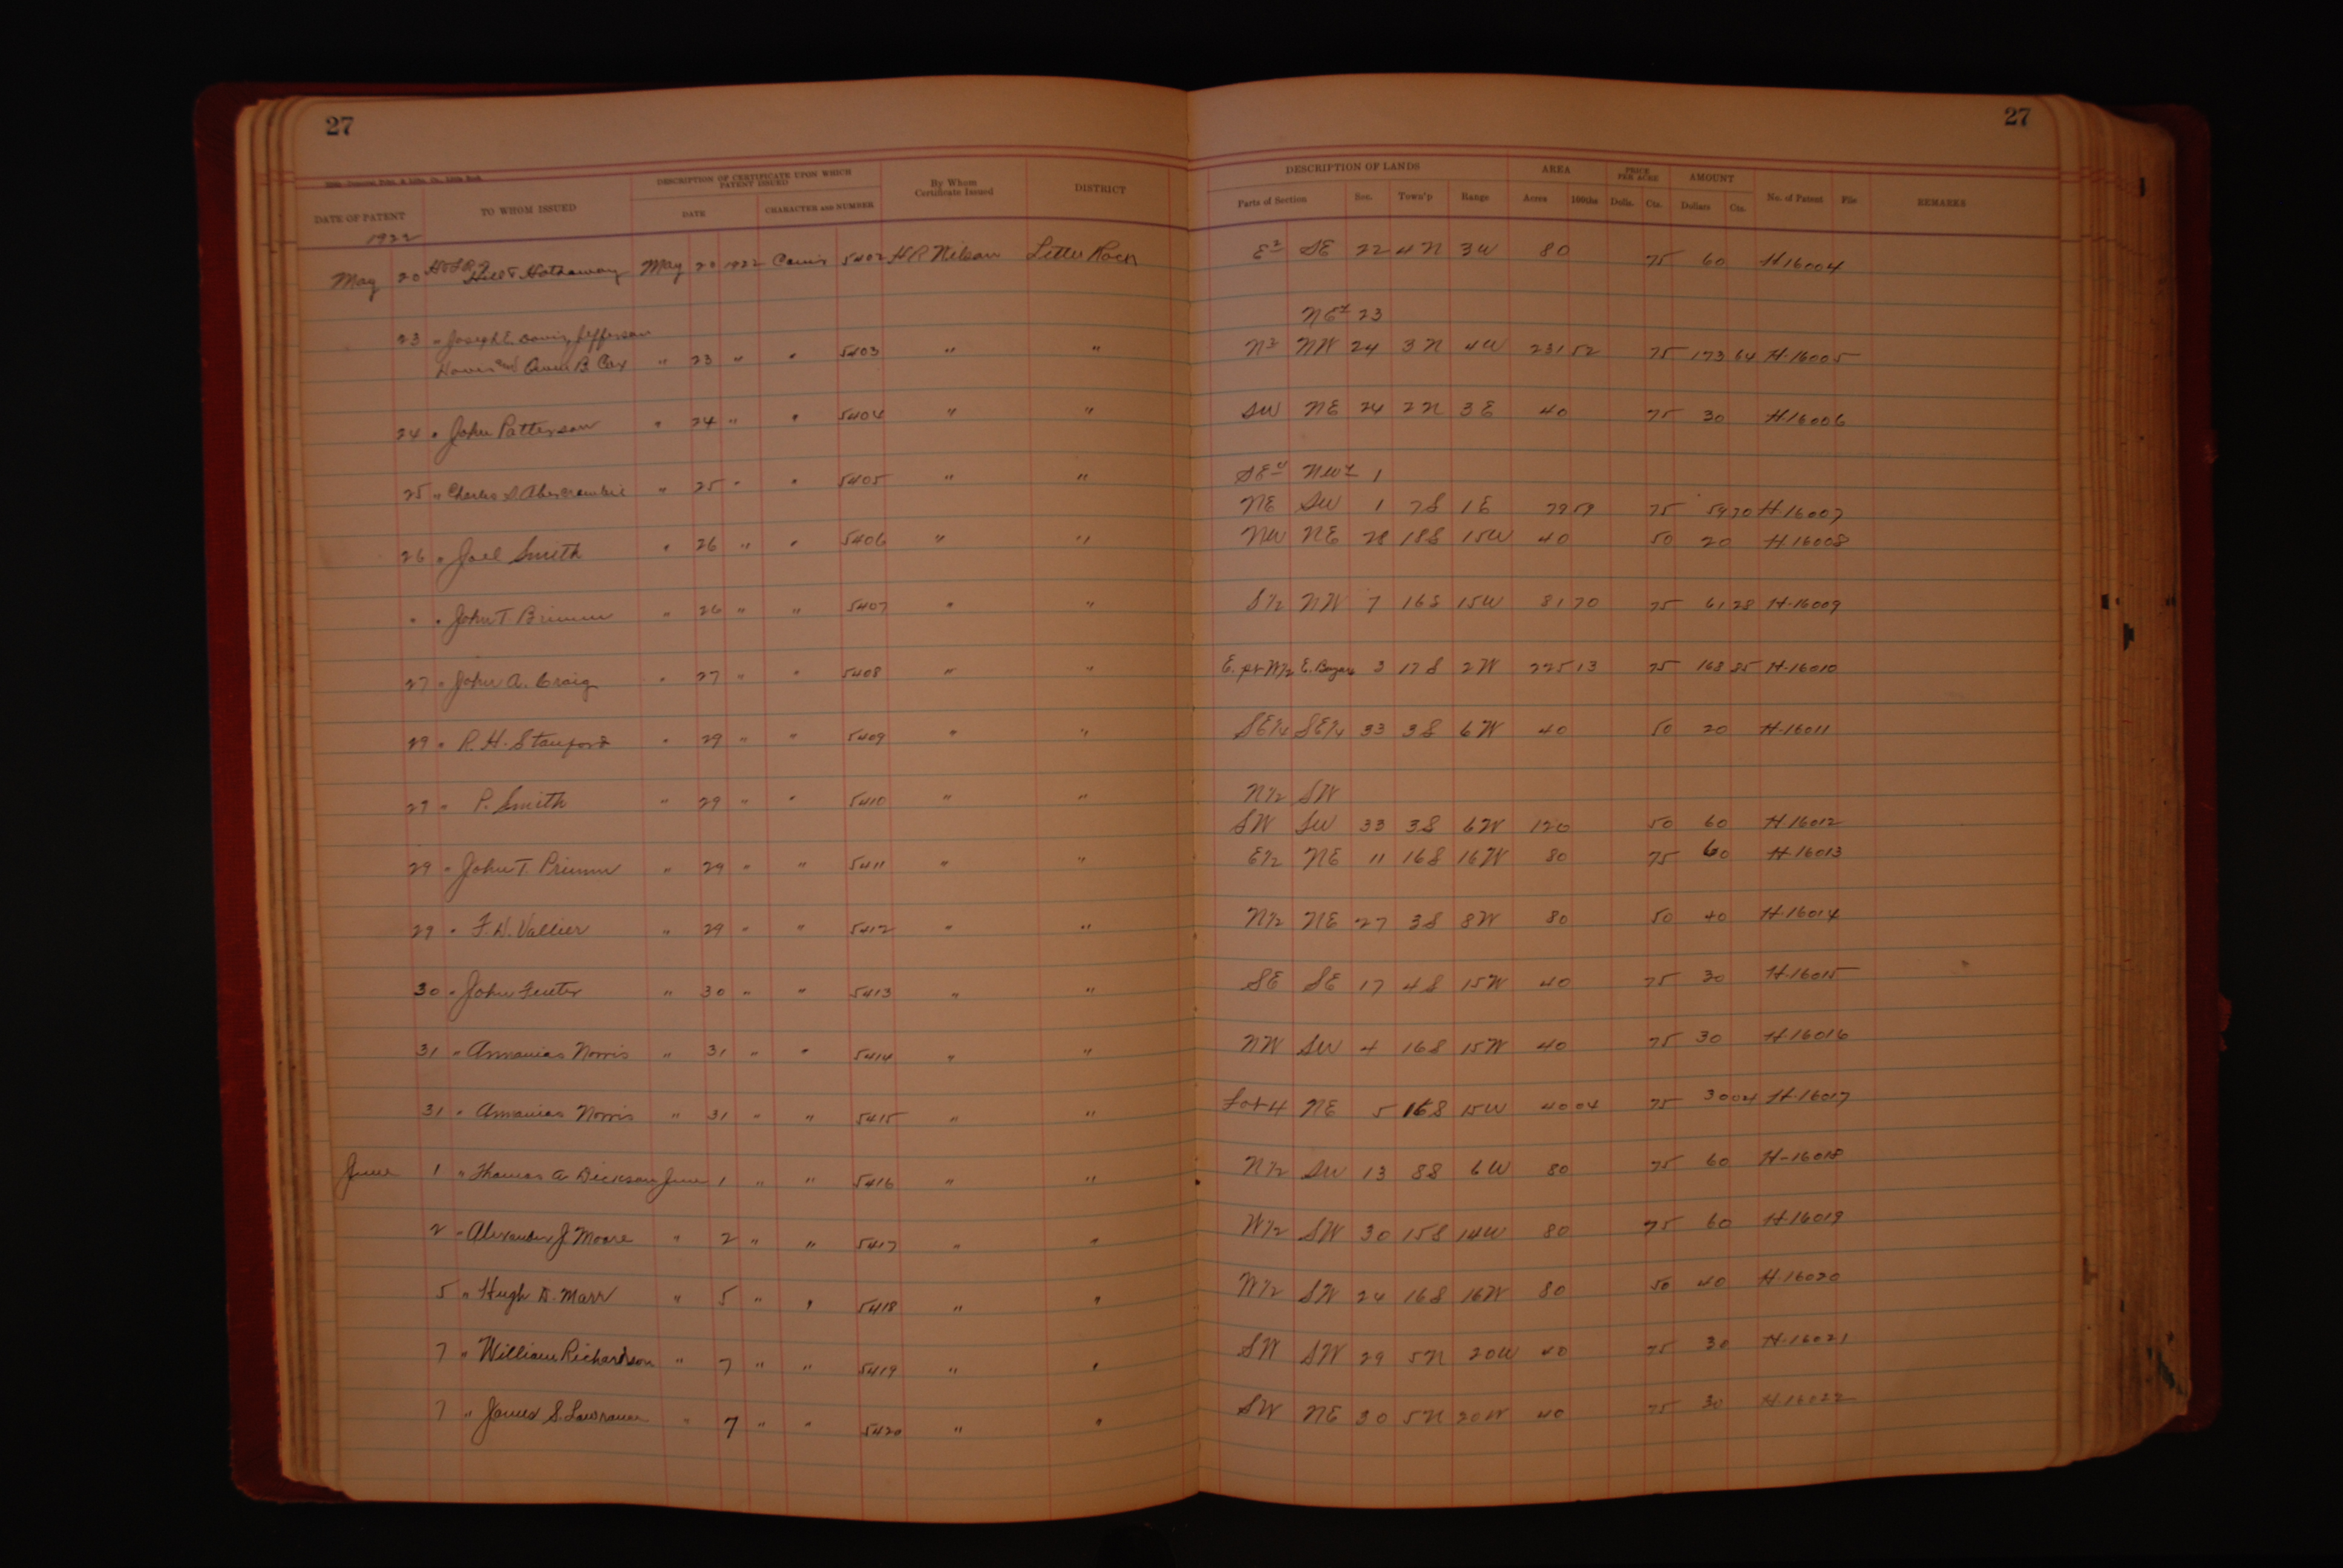 27
27
DESCRIPTION OF CERTIFICATE UPON WHICH PATENT ISSUED
By Whom Certificate Issued
DISTRICT
DESCRIPTION OF LANDS
AREA
PRICE PER ACRE
AMOUNT
No. of Patent
File
REMARKS
DATE OF PATENT
TO WHOM ISSUED
DATE
CHARACTER AND NUMBER
Parts of Section
Sec.
Town'p
Range
Acres
100ths
Dolls.
Cts.
Dollars
Cts.
1922
May 20 Hill & Hathaway May 20 1922 5402 H R Wilson Little Rock E2 SE 22 4 N 3W 80 75 60 H16004
NE4 23
23 " Joseph E. Davis, Jefferson
Davis and B. Cox " 23 " " 5403 " " N2 NW 24 3 N 4W 231 52 75 173 64 H-16005
24 " John Patterson " 24 " " 5404 " " SW NE 24 2 N 3 E 40 75 30 H16006
SE4 NW4 1
25 " Charles S. Abercrombie " 25 " " 5405 " " NE SW 1 7S 1 E 79 59 75 59 70 H-16007
26 " Joel Smith " 26 " " 5406 " " NW NE 18S 15W 40 50 20 H 16008
" " John T. Primm " 26 " " 5407 " " S1/2 NW 7 16S 15W 81 70 75 61 28 H-16009
27 " John A. Craig " 27 " " 5408 " " E. pt W1/2 E. Bayou 3 17 S 2 W 225 13 75 168 85 H-16010
29 " P. H. Stanford " 29 " " 5409 " " SE1/4 SE1/4 33 3S 6 W 40 50 20 H-16011
N1/2 SW
29 " P. Smith " 29 " " 5410 " " SW SW 33 3S 6W 120 50 60 H-16012
29 " John T. Primm " 29 " " 5411 " " E1/2 NE 11 16S 16W 80 75 60 H-16013
29 " F. D. Vallier " 29 " " 5412 " " N1/2 NE 27 3S 8W 80 50 40 H-16014
30 " John Fenter " 30 " " 5413 " " SE SE 17 4S 15W 40 75 30 H-16015
31 " Annanias Norris " 31 " " 5414 " " NW SW 4 16S 15W 40 75 30 H-16016
31 " Annanias Norris " 31 " " 5415 " " Lot 4 NE 5 16S 15W 40 04 75 30 04 H-16017
June 1 " Thomas A Dickson June 1 " " 5416 " " N1/2 SW 13 8S 6W 80 75 60 H-16018
2 " Alexander J Moore " 2 " " 5417 " " W1/2 SW 30 15S 14W 80 75 60 H-16019
5 " Hugh D. Marr " 5 " " 5418 " " W1/2 SW 24 16S 16W 80 50 40 H-16020
7 " William Richardson " 7 " " 5419 " " SW SW 29 5N 20W 40 75 30 H-16021
7 " James S. Lawrance " 7 " " 5420 " " SW NE 30 5N 20W 40 75 30 H-16022